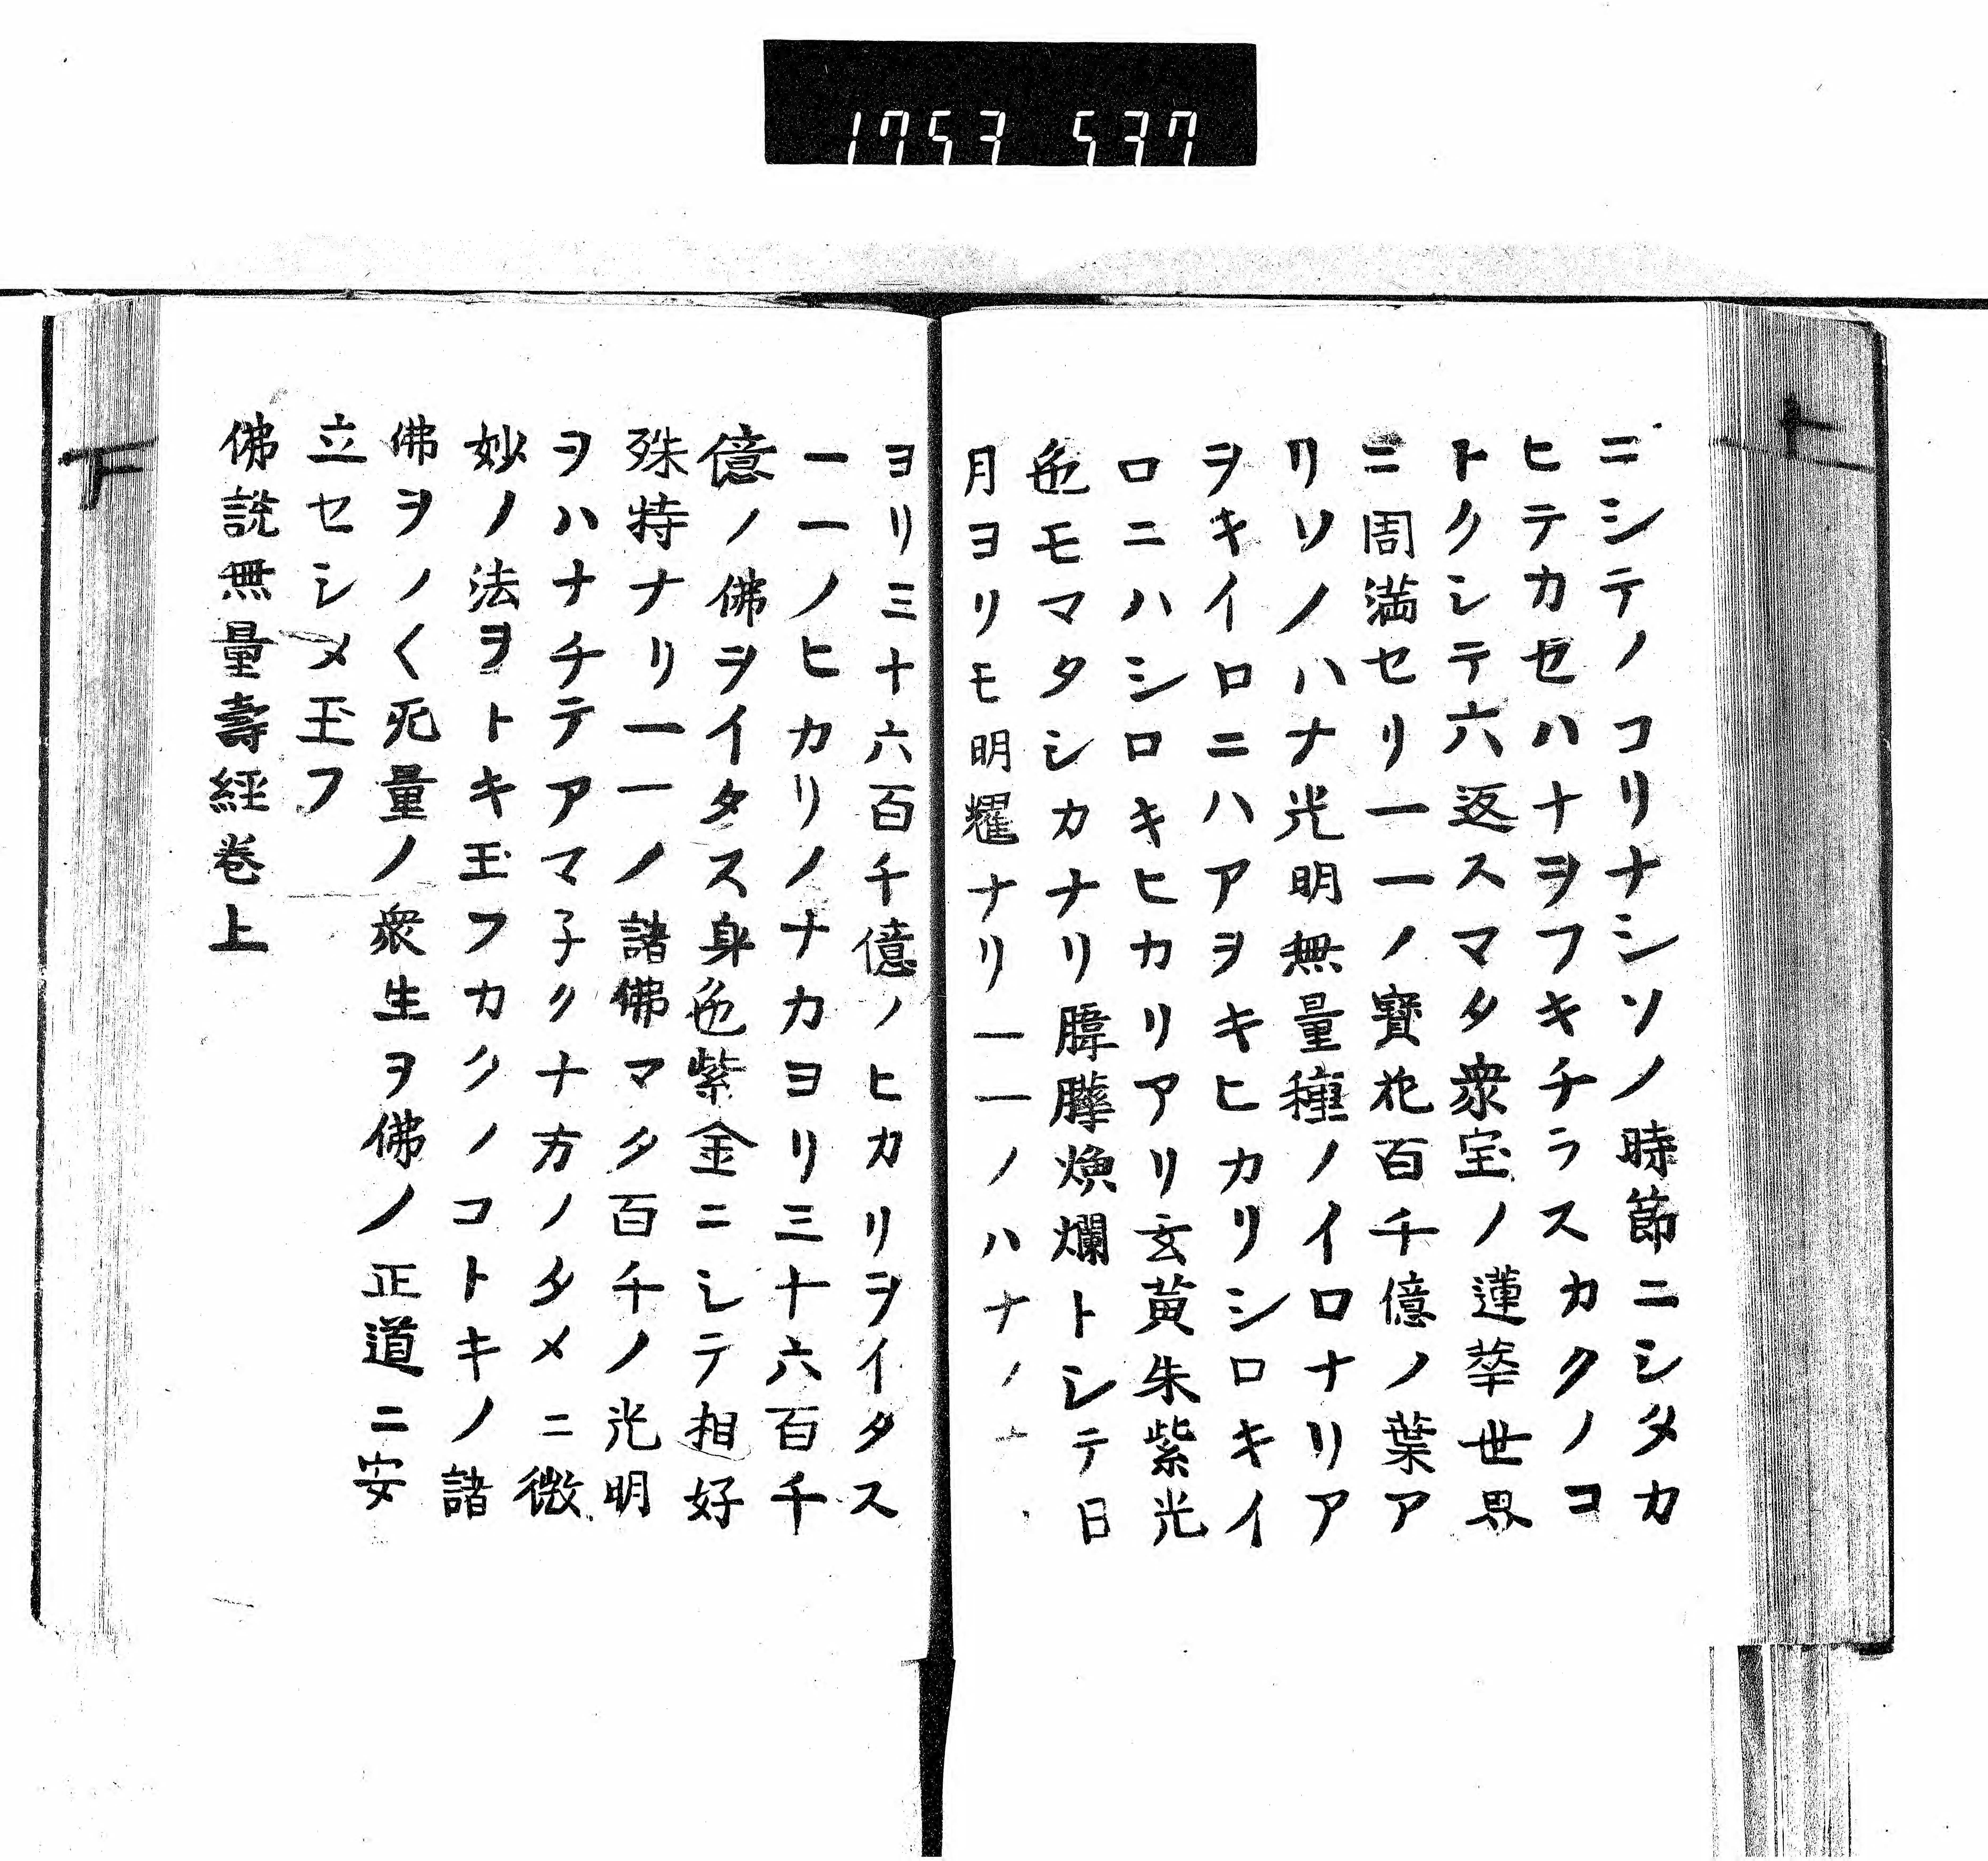 1753 537
ニシテノコリナシソノ時節ニシタカ
ヒテカセハナヲフキチラスカクノコ
トクシテ六返スマタ衆宝ノ蓮華世界
ニ周満セリ一一ノ寳花百千億ノ葉ア
リソノハナ光明無量種ノイロナリア
ヲキイロニハアヲキヒカリシロキイ
ロニハシロキヒカリアリ玄黄朱紫光
色モマタシカナリ暐曄煥爛トシテ日
月ヨリモ明耀ナリ一一ノハナノ
ヨリ三十六百千億ノヒカリヲイタス
一一ノヒカリノナカヨリ三十六百千
億ノ佛ヲイタス身色紫金ニシテ相好
殊特ナリ一一ノ諸佛マタ百千ノ光明
ヲハナチテアマ子クナ方ノタメニ微
妙ノ法ヲトキ玉フカクノコトキノ諸
佛ヲノ〱死量ノ衆生ヲ佛ノ正道ニ安
立セシメ玉フ
佛説無量壽經巻上
下